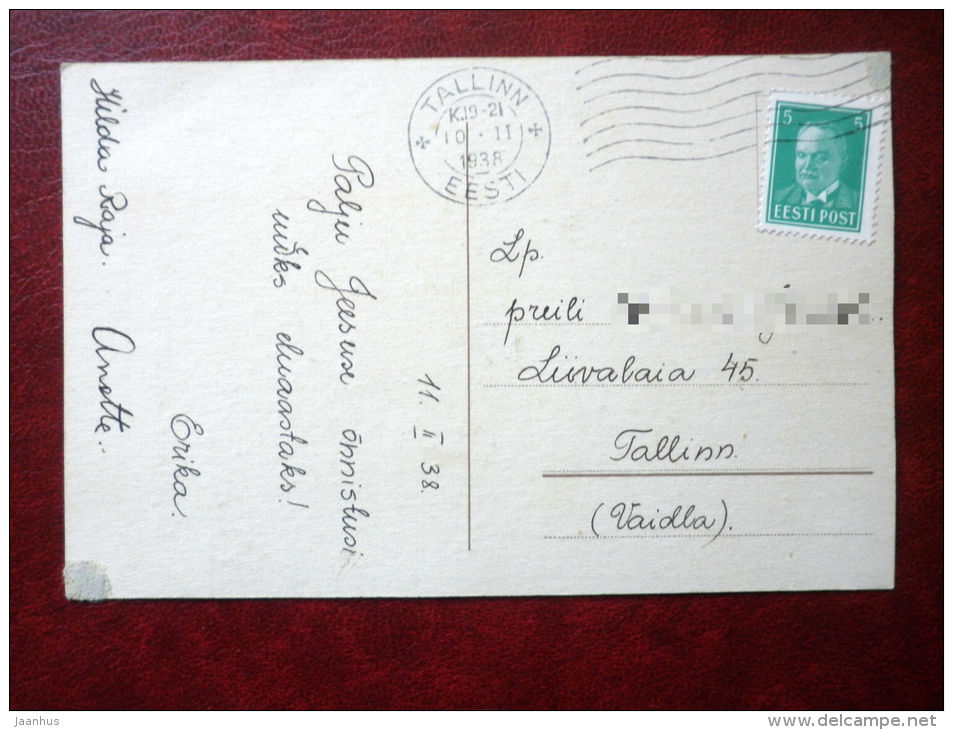 TALLINN
K.19-21
10 · II
1938
EESTI
5 5
EESTI POST
11. II 38.
Palju Jeesuse õnnistusi
uueks eluaastaks!
Erika.
Hilda Raja. Anette.
Lp.
preili
Liivalaia 45.
Tallinn.
(Vaidla).
Jaanhus
www.delcampe.net